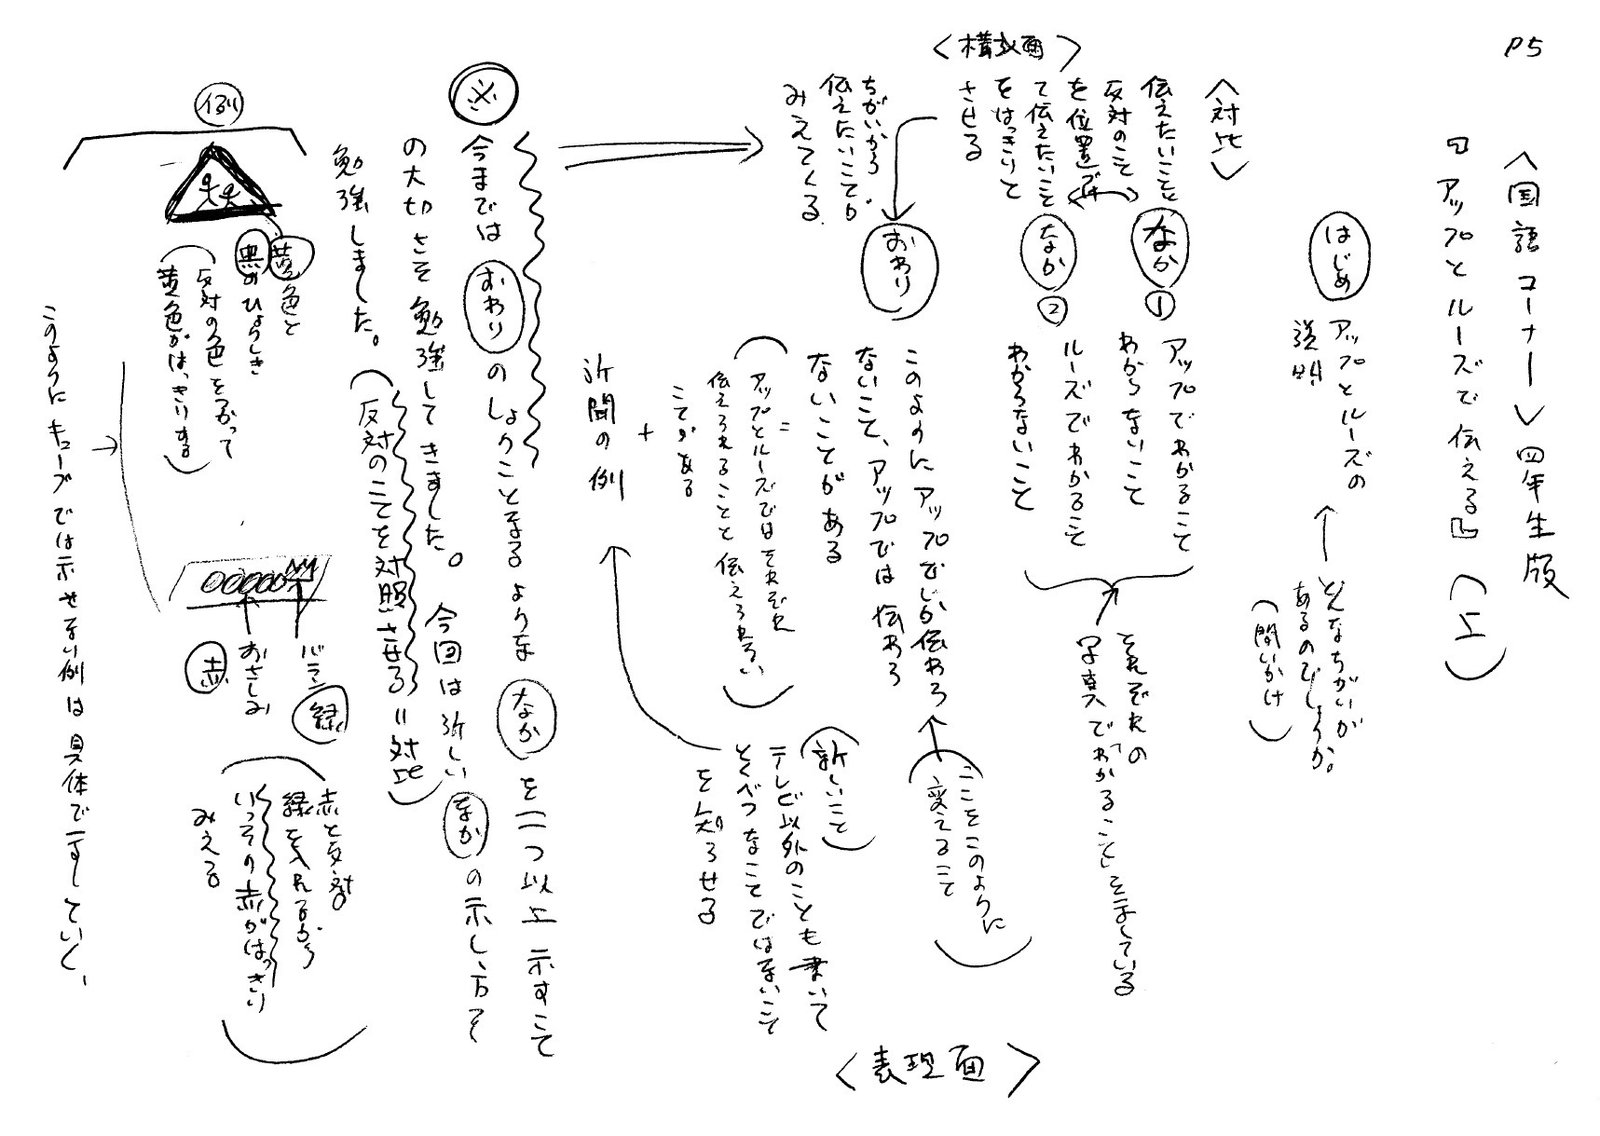 P5
〈国語コーナー〉四年生版
『アップとルーズで伝える』(上)
はじめ
アップとルーズの
説明
どんなちがいが
あるのでしょうか。
(問いかけ)
〈構成面〉
〈対比〉
伝えたいことと
反対のこと
を位置づけ
て伝えたいこと
をはっきりと
させる
なか
①
アップでわかること
わからないこと
なか
②
ルーズでわかること
わからないこと
それぞれの
写真で「わかること」を示している
ちがいから
伝えたいことが
みえてくる
おわり
このようにアップでしか伝わら
ないこと、アップでは伝わら
ないことがある
=
(アップとルーズではそれぞれ
伝えられることと伝えられない
ことがある)
+
新聞の例
(ここをこのように
変えること)
(新しいこと)
テレビ以外のことも書いて
とくべつなことではないこと
を知らせる
〈表現面〉
※
今までは おわり のしょうことなるような なか を二つ以上示すこと
の大切さを勉強してきました。今回は新しい なか の示し方を
勉強しました。
(反対のことを対照させる=対比)
例
黄色と
黒のひょうしき
(反対の色をつかって
黄色がはっきりする)
バラン
緑
おさしみ
赤
(赤と反対
緑を入れるから
いっそう赤がはっきり
みえる)
このようにキューブでは示せない例は具体で示していく、